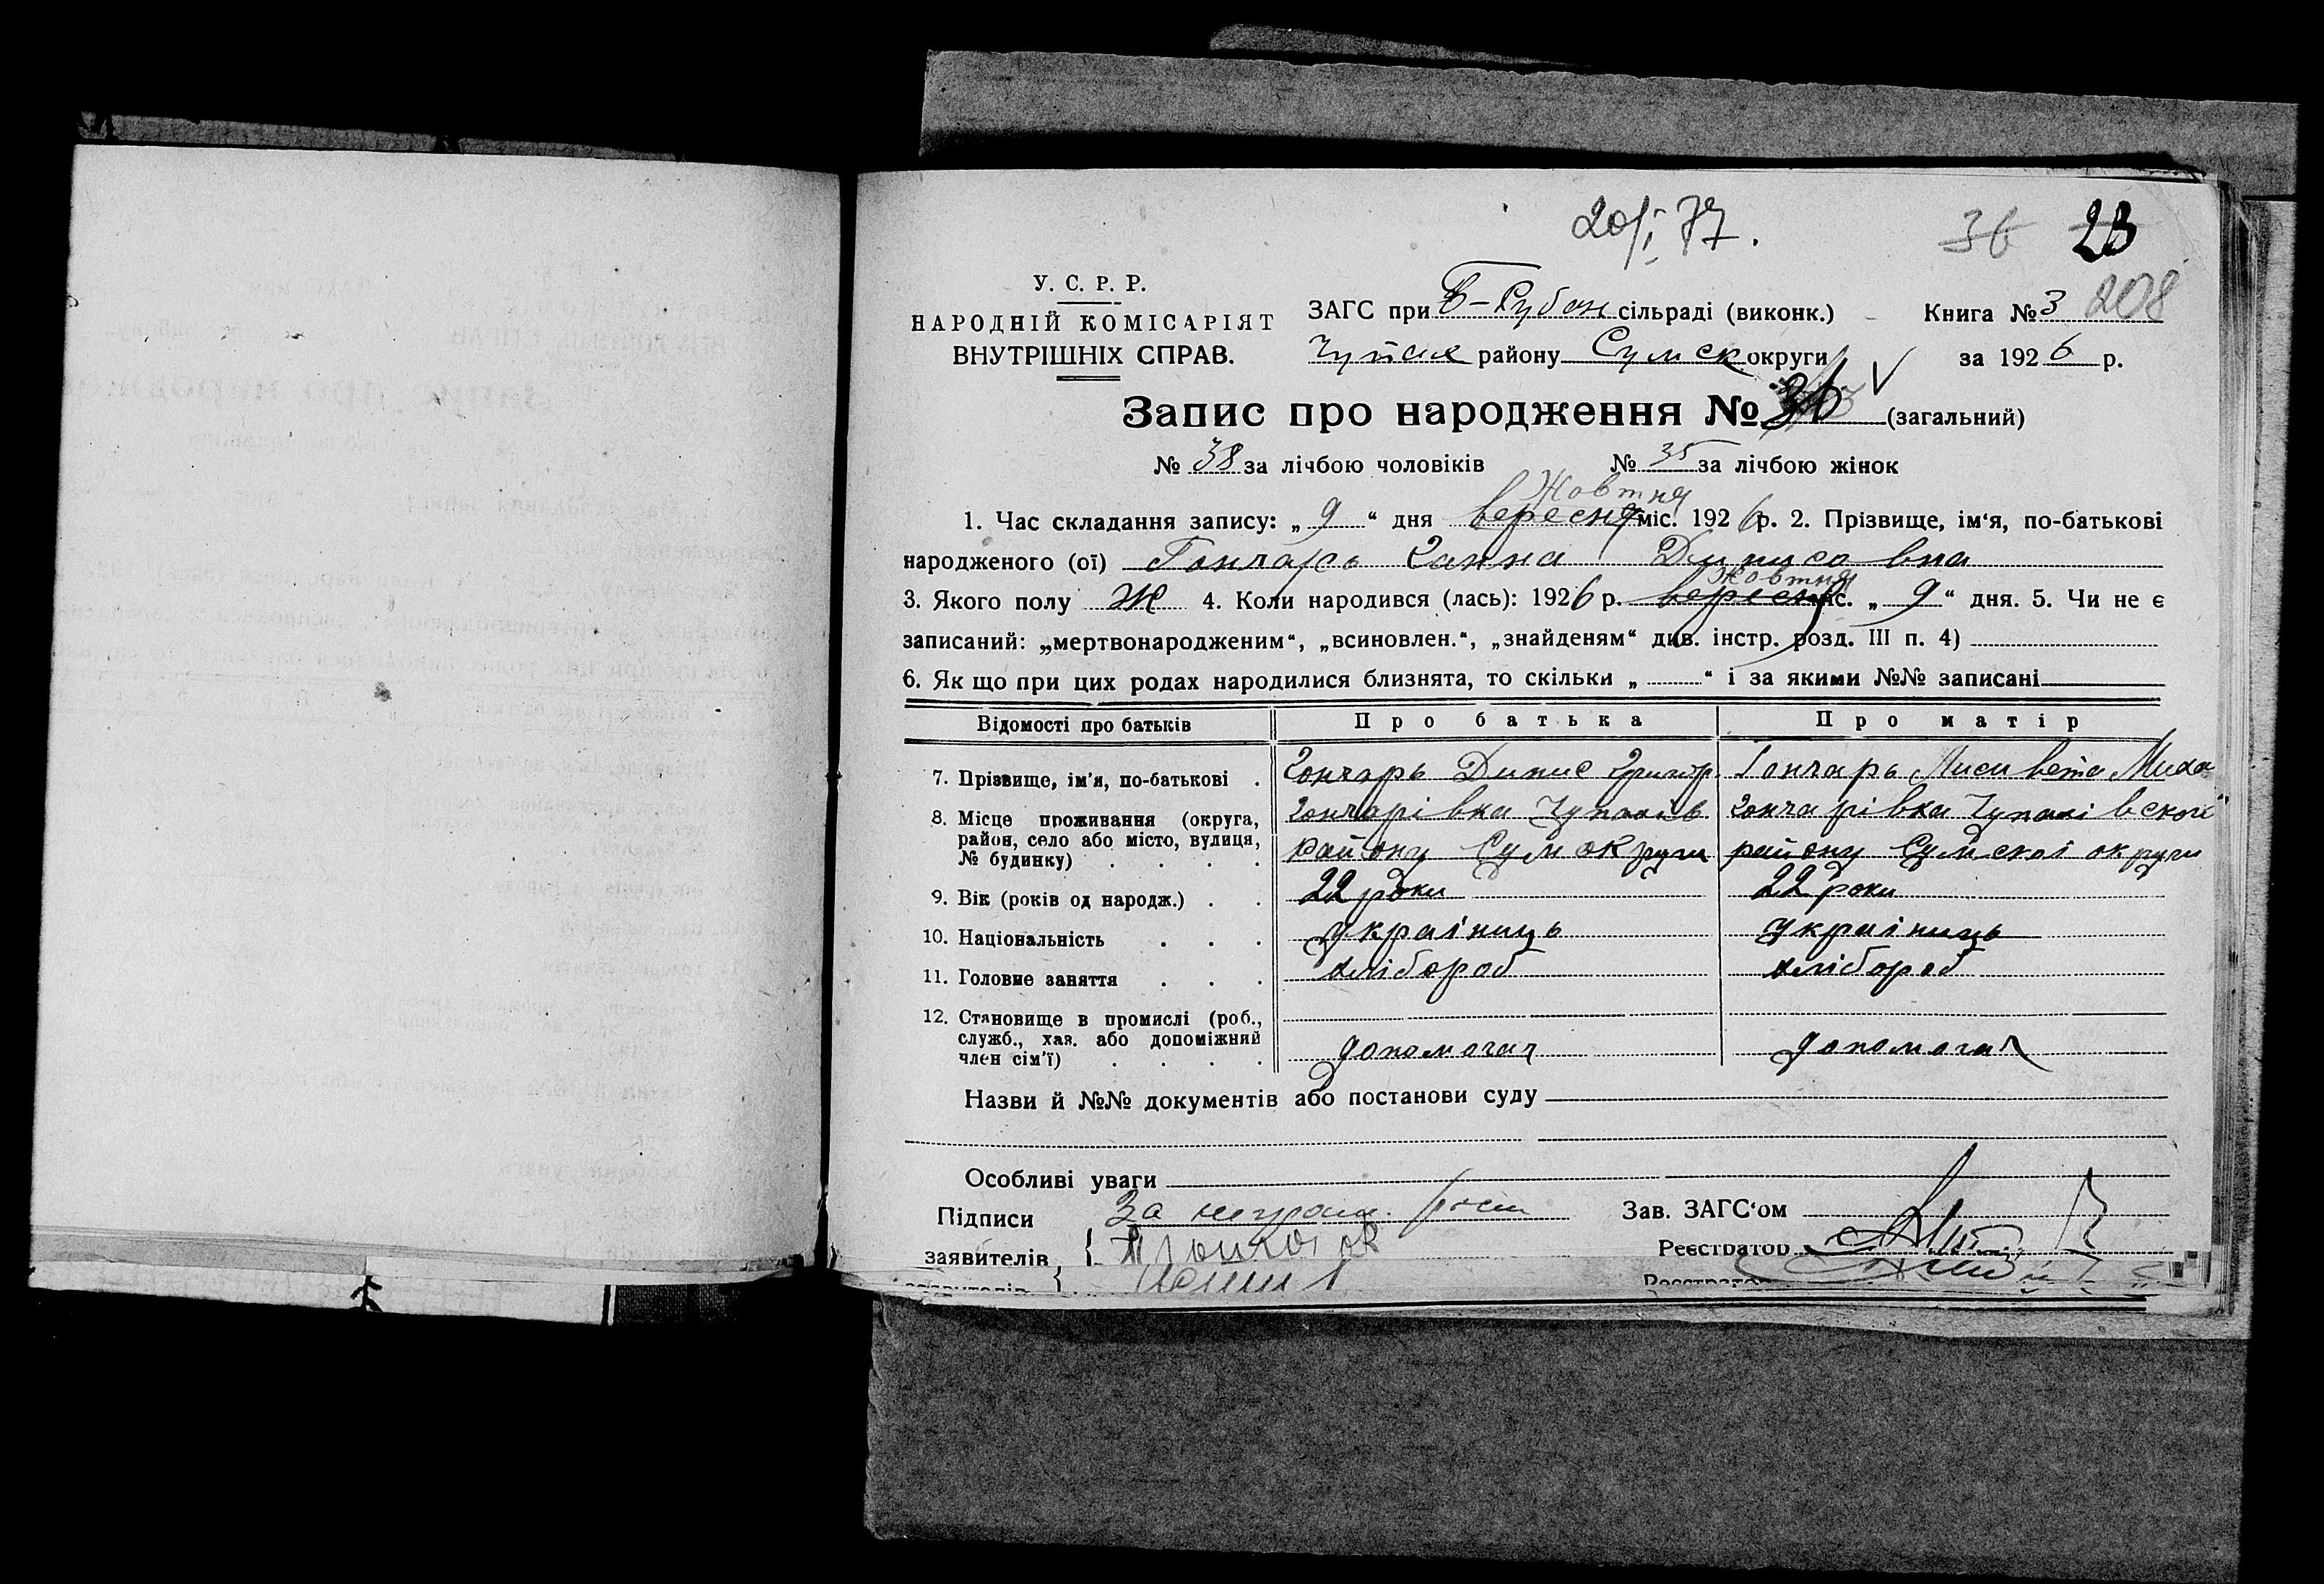 20/I 77.
36 23
208
У. С. Р. Р.
НАРОДНІЙ КОМІСАРІЯТ
ВНУТРІШНІХ СПРАВ.
ЗАГС при В-Рубан сільраді (виконк.) Книга № 3
району Сумск округи за 1926 р.
Запис про народження № (загальний)
№ 38 за лічбою чоловіків № 35 за лічбою жінок
Жовтня
1. Час складання запису: „ 9 “ дня вересня міс. 1926 р. 2. Прізвище, ім‘я, по-батькові
народженого (ої) Гончарь Ганна Динисовна
Жовтня
3. Якого полу Ж 4. Коли народився (лась): 1926 р. вересня міс. „ 9 “ дня. 5. Чи не є
записаний: „мертвонародженим“, „всиновлен.“, „знайденям“ див. інстр. розд. III п. 4)
6. Як що при цих родах народилися близнята, то скільки „ “ і за якими №№ записані
Відомості про батьків Про батька Про матір
7. Прізвище, ім'я, по-батькові . Гончарь Динис Григор. Гончарь Лисивета Миха
8. Місце проживання (округа, район, село або місто, вулиця, № будинку) . . . . Гончарівка району Сум округи Гончарівка району Сумскоі округи
9. Вік (років од народж.) . . 22 роки 22 роки
10. Національність . . . украіниць украіниць
11. Головне заняття . . . хлібороб хлібороб
12. Становище в промислі (роб., служб., хаз. або допоміжний член сім'ї) . . . . допомогач допомогач
Назви й №№ документів або постанови суду
Особливі уваги
Підписи За неграм.
заявителів {
Зав. ЗАГС‘ом
Реєстратор
заявителів {
Реєстратор